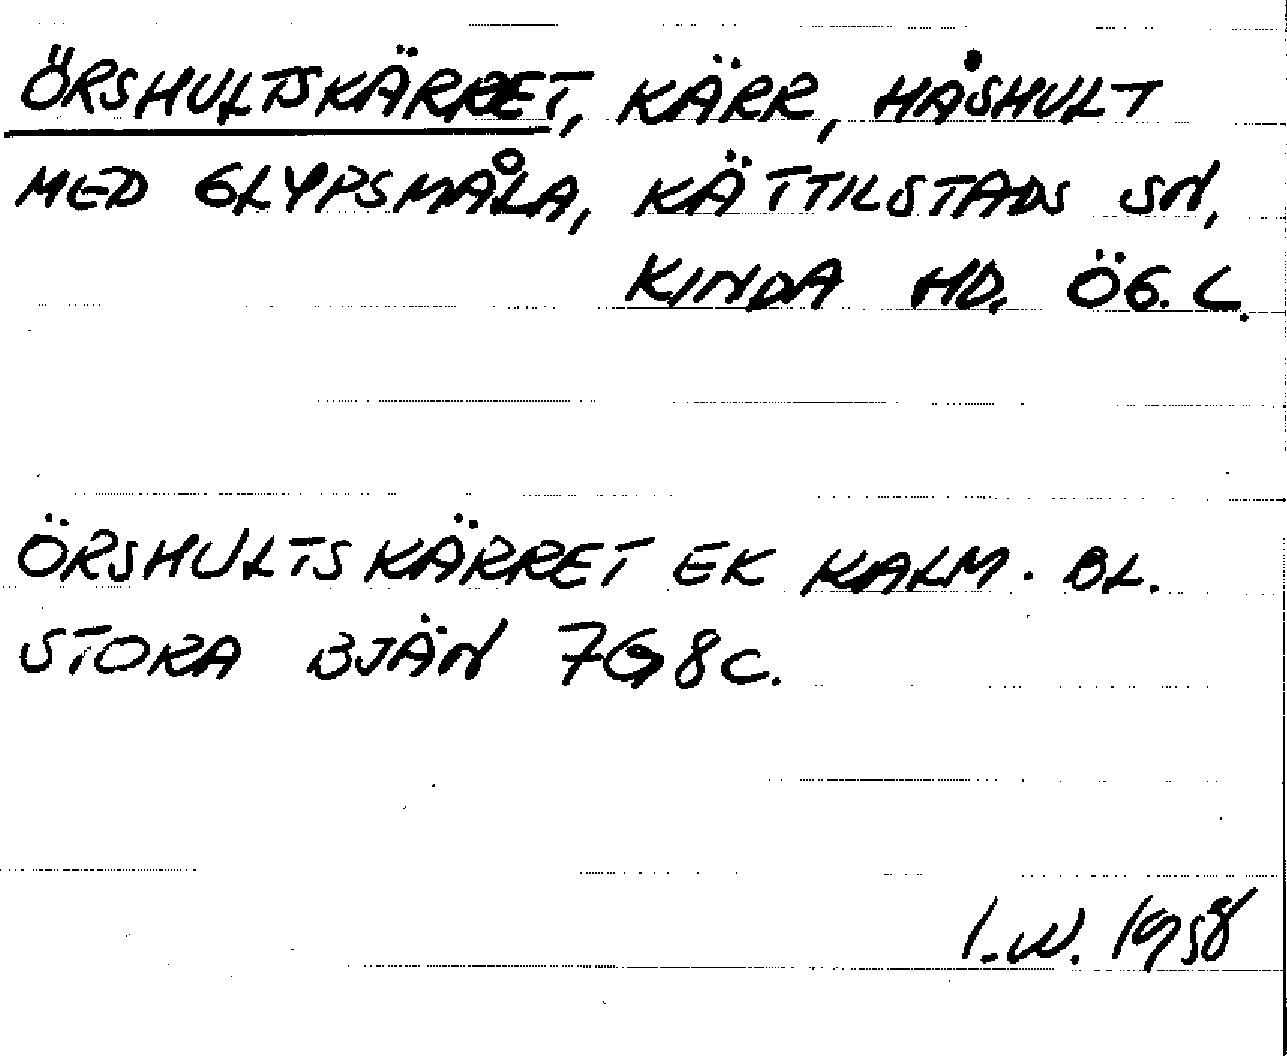 ÖRSHULTSKÄRRET, KÄRR, HÅSHULT
MED GLYPSMÅLA, KÄTTILSTADS SN,
KINDA HD. ÖG. L.
ÖRSHULTSKÄRRET EK KALM. BL.
STORA BJÄN 7G8C.
I.W. 1958